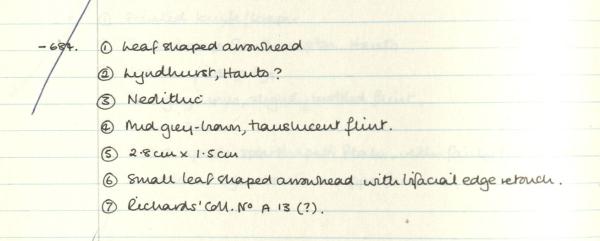 -684. ① Leaf shaped arrowhead
② Lyndhurst, Hants?
③ Neolithic
④ Mid grey-brown, translucent flint.
⑤ 2.8cm x 1.5cm
⑥ Small leaf shaped arrowhead with bifacial edge retouch.
⑦ Richards' Coll. No A 13 (?).